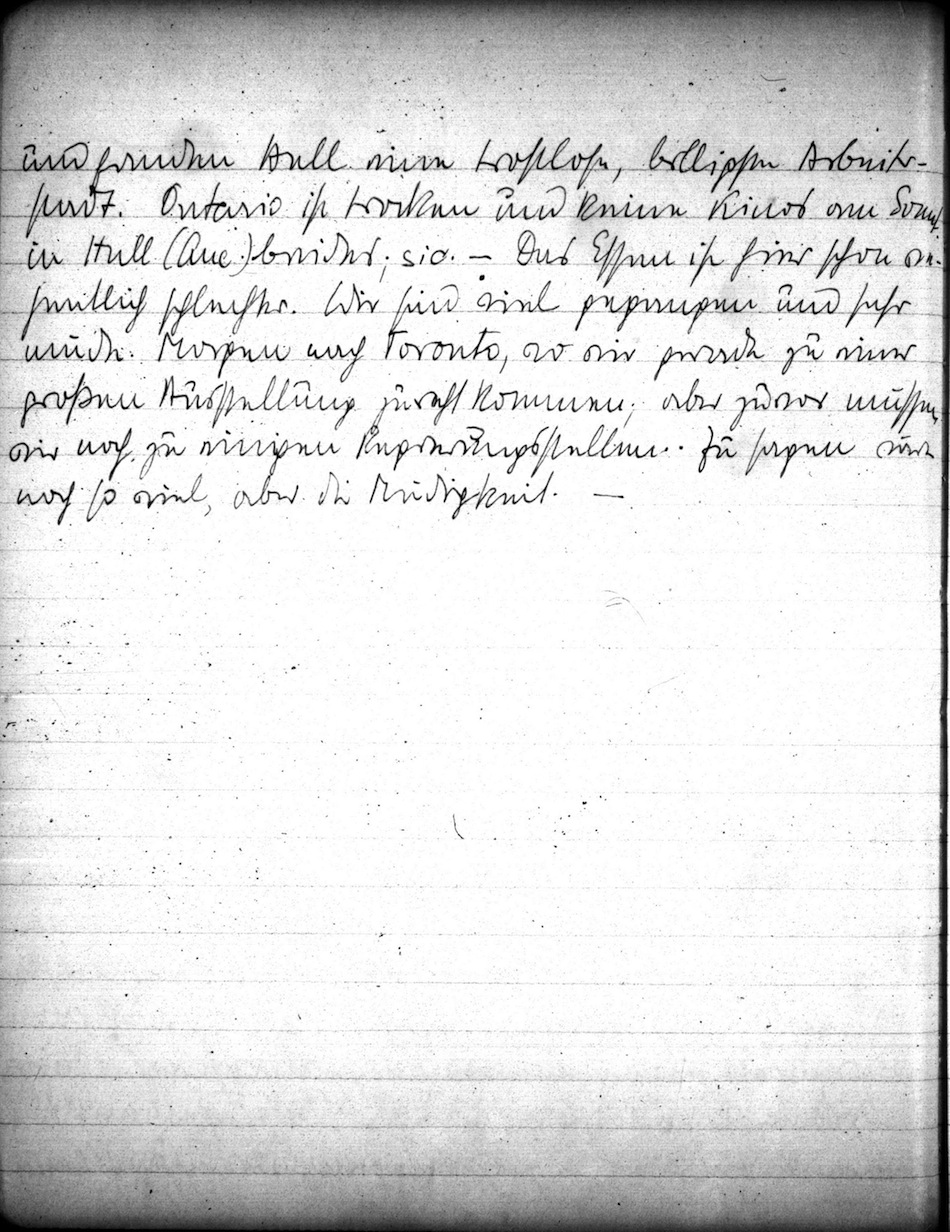 und fanden Hull eine trostlose, belgische Arbeiter-
stadt. Ontario ist trocken und keine Kinos am Sonnt.
in Hull (Que.) beides; sic. — Das Essen ist hier schon we-
sentlich schlechter. Wir sind viel gegangen und sehr
müde. Morgen nach Toronto, wo wir gerade zu einer
großen Ausstellung zurecht kommen; aber zuvor müssen
wir noch zu einigen Regierungsstellen. Zu sagen wäre
noch so viel, aber die Müdigkeit. —